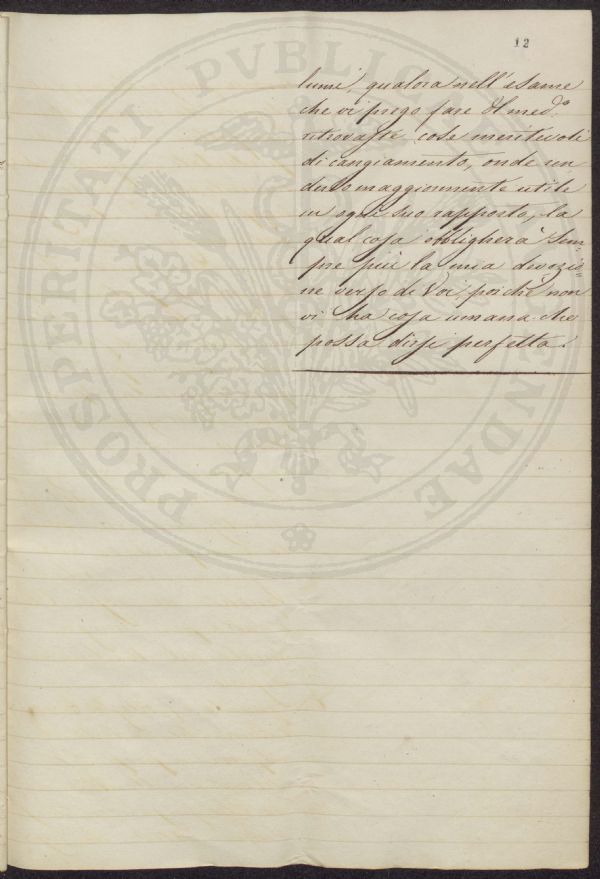 12
lumi, qualora nell'esame
che vi prego fare del med.o
ritrovaste cose meritevoli
di cangiamento, onde ren-
derlo maggiormente utile
in ogni suo rapporto, la
qual cosa obbligherà sem-
pre più la mia devozio-
ne verso di Voi, poichè non
vi ha cosa umana che
possa dirsi perfetta.
PROSPERITATI PVBLICAE